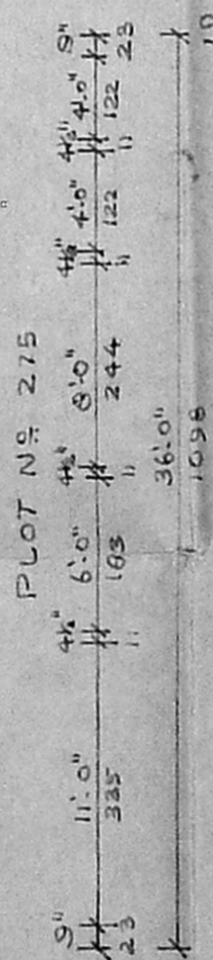 PLOT Nº 275
9" 11'-0" 4½" 6'-0" 4½" 8'-0" 4½" 4'-0" 4½" 4'-0" 9"
23 335 11 183 11 244 11 122 11 122 23
36'-0"
1098